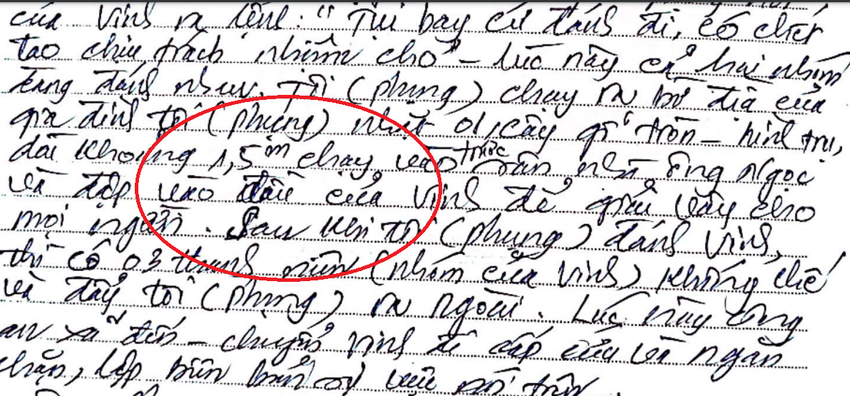 của Vinh ra lệnh: "Tụi bay cứ đánh đi, có chết
tao chịu trách nhiệm cho" - lúc này cả hai nhóm
đang đánh nhau. Tôi (phụng) chạy ra bờ đìa của
gia đình tôi (phụng) nhặt 01 cây gỗ tròn - hình trụ,
dài khoảng 1,5m chạy vào trước sân nhà ông Ngọc
và đập vào đầu của Vinh để giải vây cho
mọi người. Sau khi tôi (phụng) đánh Vinh,
thì có 03 thanh niên (nhóm của Vinh) khống chế
và đẩy tôi (phụng) ra ngoài. Lúc này công
an xã đến - chuyển Vinh đi cấp cứu và ngăn
chặn, lập biên bản sự việc nói trên